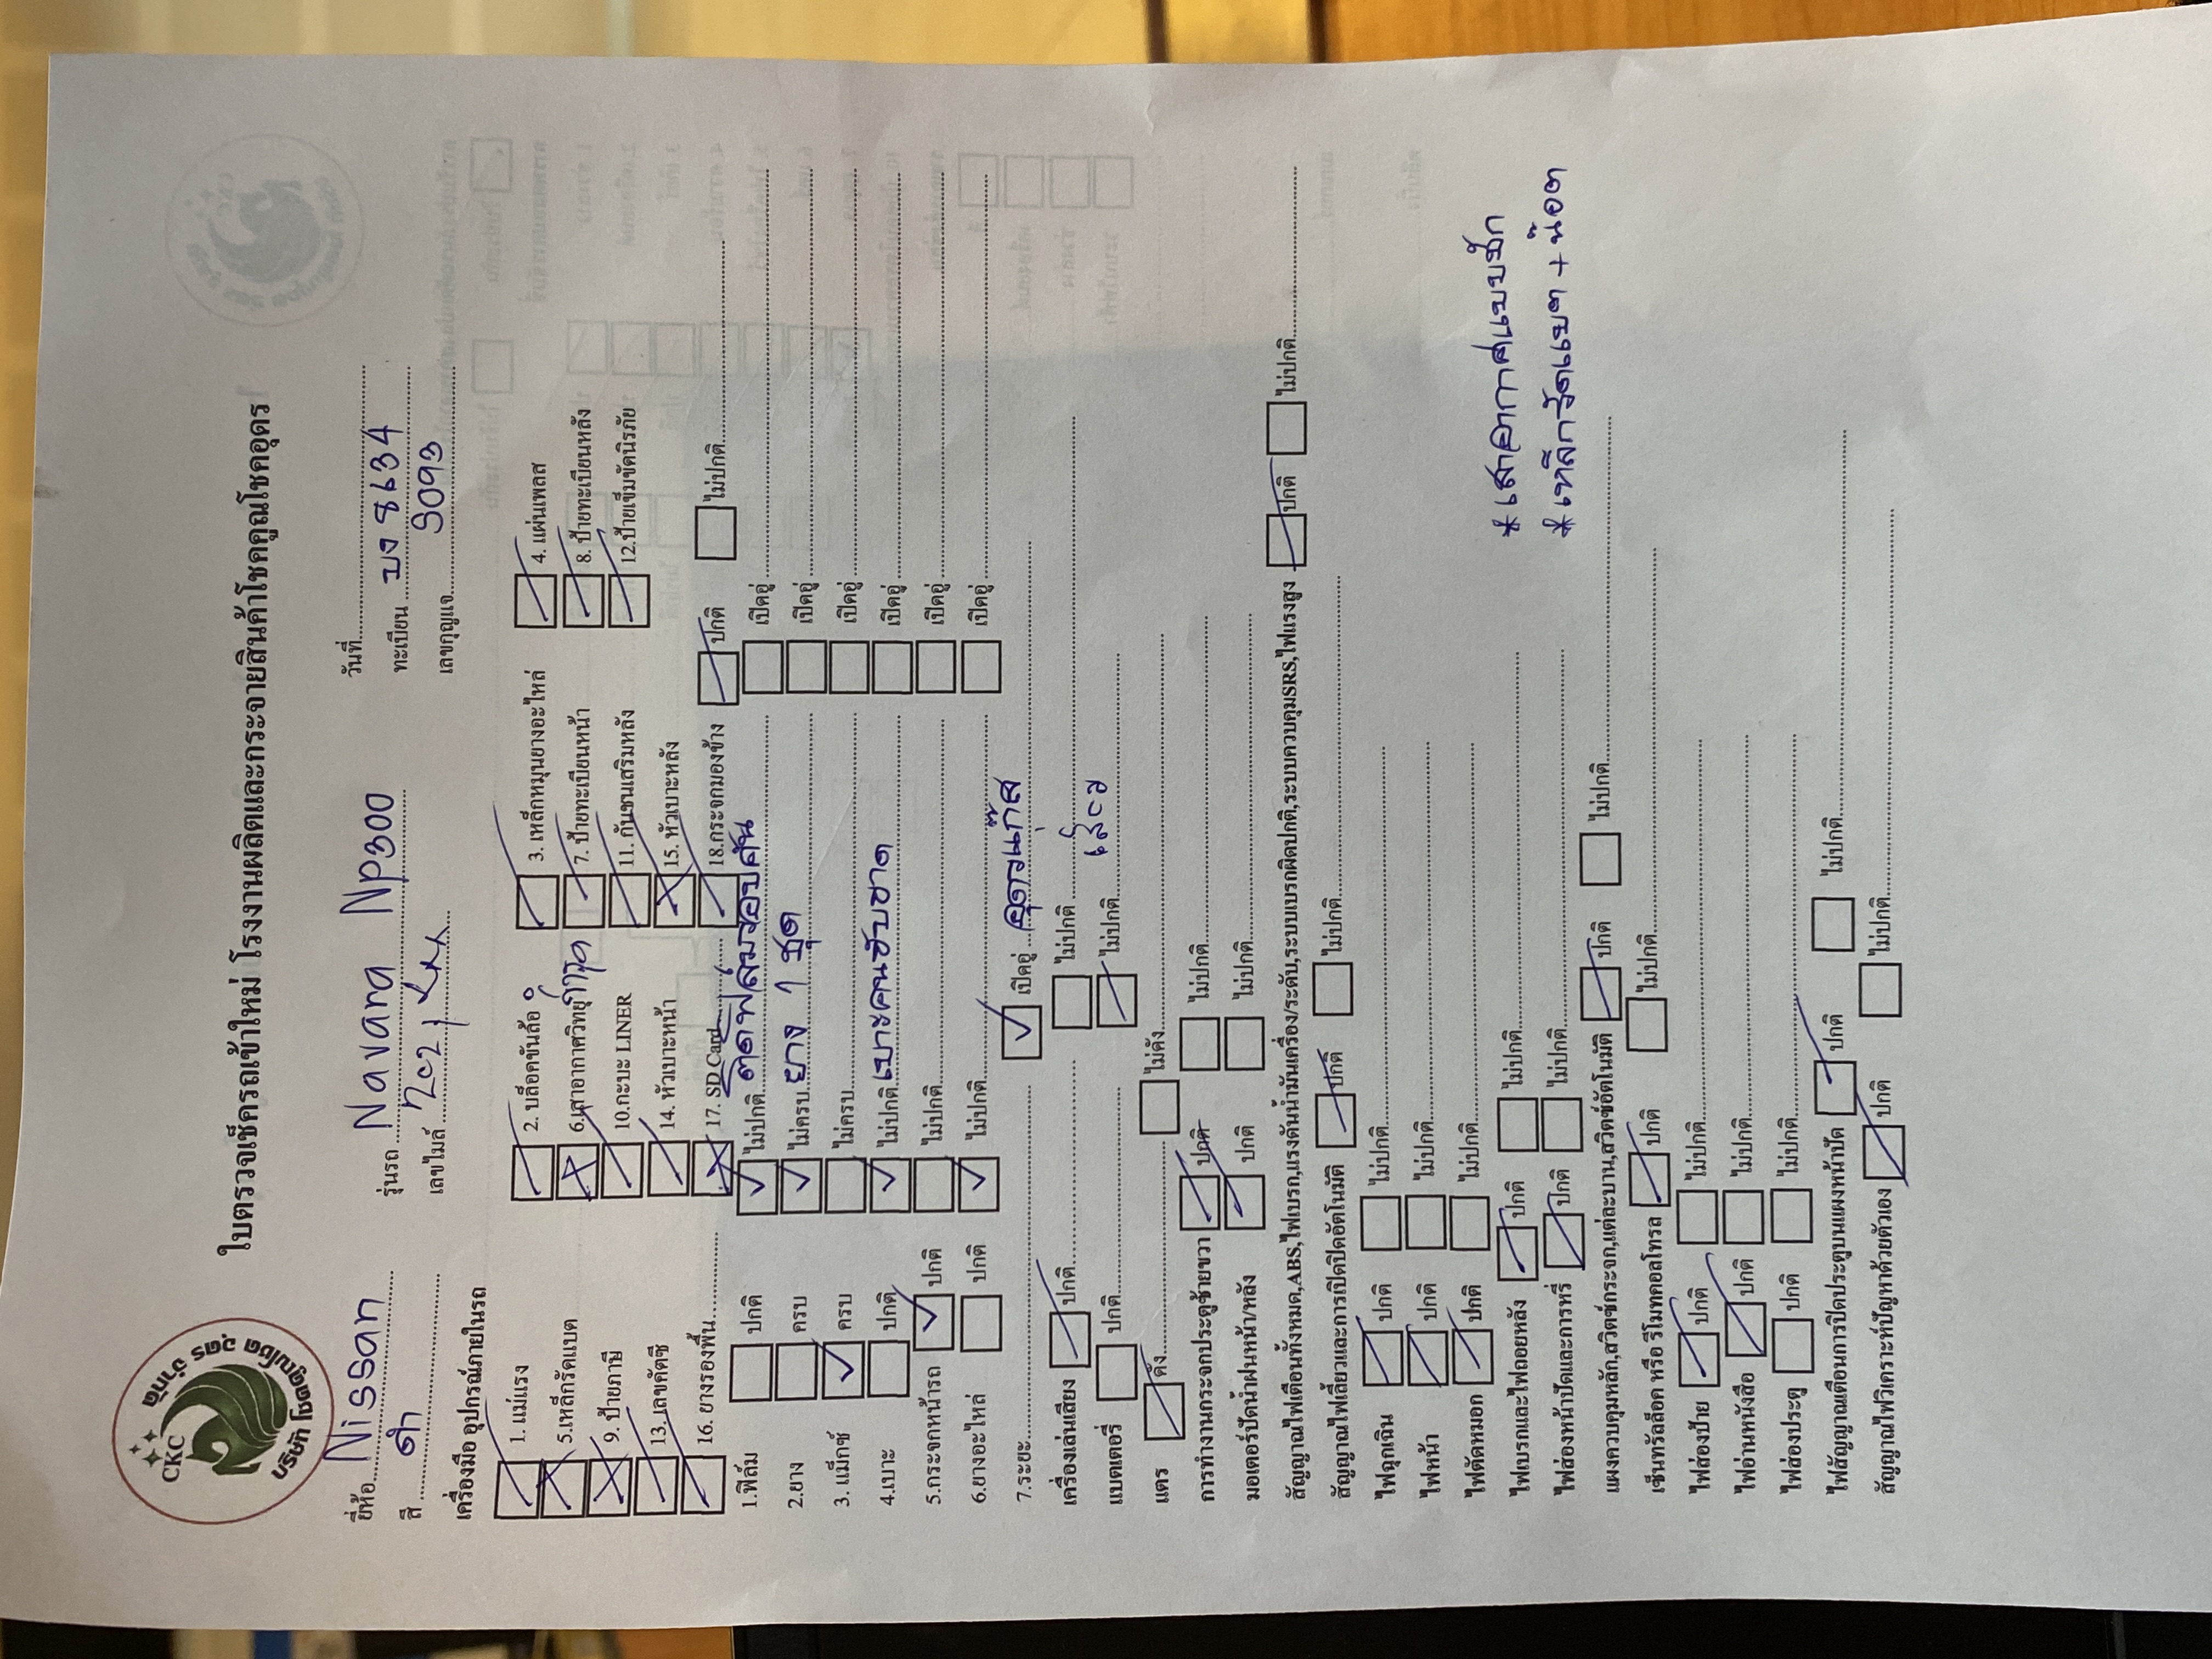 CKC
บริษัท โชคคูณโชค อุดร จำกัด
ใบตรวจเช็ครถเข้าใหม่ โรงงานผลิตและกระจายสินค้าโชคคูณโชคอุดร
ยี่ห้อ Nissan รุ่นรถ Navara NP300 วันที่
สี ดำ เลขไมล์ ทะเบียน บง 8634
เลขกุญแจ 9093
เครื่องมือ อุปกรณ์ภายในรถ
1. แม่แรง 2. บล็อคขันล้อ 3. เหล็กหมุนยางอะไหล่ 4. แผ่นเพลส
5.เหล็กรัดแบต 6.เสาอากาศวิทยุ 7. ป้ายทะเบียนหน้า 8. ป้ายทะเบียนหลัง
9. ป้ายภาษี 10.กะบะ LINER 11. กันชนเสริมหลัง 12.ป้ายเข็มขัดนิรภัย
13. เลขคัตซี 14. หัวเบาะหน้า 15. หัวเบาะหลัง
16. ยางรองพื้น 17. SD Card 18.กระจกมองข้าง ปกติ ไม่ปกติ
1.ฟิล์ม ปกติ ไม่ปกติ ติดฟิล์มรอบคัน เปิดอู่
2.ยาง ครบ ไม่ครบ ยาง 1 ชุด เปิดอู่
3. แม็กซ์ ครบ ไม่ครบ เปิดอู่
4.เบาะ ปกติ ไม่ปกติ เบาะคนขับขาด เปิดอู่
5.กระจกหน้ารถ ปกติ ไม่ปกติ เปิดอู่
6.ยางอะไหล่ ปกติ ไม่ปกติ เปิดอู่
7.ระยะ เปิดอู่
เครื่องเล่นเสียง ปกติ ไม่ปกติ
แบตเตอรี่ ปกติ ไม่ปกติ
แตร ดัง ไม่ดัง
การทำงานกระจกประตูซ้ายขวา ปกติ ไม่ปกติ
มอเตอร์ปัดน้ำฝนหน้า/หลัง ปกติ ไม่ปกติ
สัญญาณไฟเตือนทั้งหมด,ABS,ไฟเบรก,แรงดันน้ำมันเครื่อง/ระดับ,ระบบเบรกผิดปกติ,ระบบควบคุมSRS,ไฟแรงสูง ปกติ ไม่ปกติ
สัญญาณไฟเลี้ยวและการเปิดปิดอัตโนมัติ ปกติ ไม่ปกติ
ไฟฉุกเฉิน ปกติ ไม่ปกติ
ไฟหน้า ปกติ ไม่ปกติ
ไฟตัดหมอก ปกติ ไม่ปกติ
ไฟเบรกและไฟถอยหลัง ปกติ ไม่ปกติ
*เสาอากาศแบบชัก
ไฟส่องหน้าปัดและการหรี่ ปกติ ไม่ปกติ
*เหล็กรัดแบต + น๊อต
แผงควบคุมหลัก,สวิตช์กระจก,แต่ละบาน,สวิตช์อัตโนมัติ ปกติ ไม่ปกติ
เซ็นทรัลล็อค หรือ รีโมทคอลโทรล ปกติ ไม่ปกติ
ไฟส่องป้าย ปกติ ไม่ปกติ
ไฟอ่านหนังสือ ปกติ ไม่ปกติ
ไฟส่องประตู ปกติ ไม่ปกติ
ไฟสัญญาณเตือนการปิดประตูบนแผงหน้าปัด ปกติ ไม่ปกติ
สัญญาณไฟวิเคราะห์ปัญหาด้วยตัวเอง ปกติ ไม่ปกติ